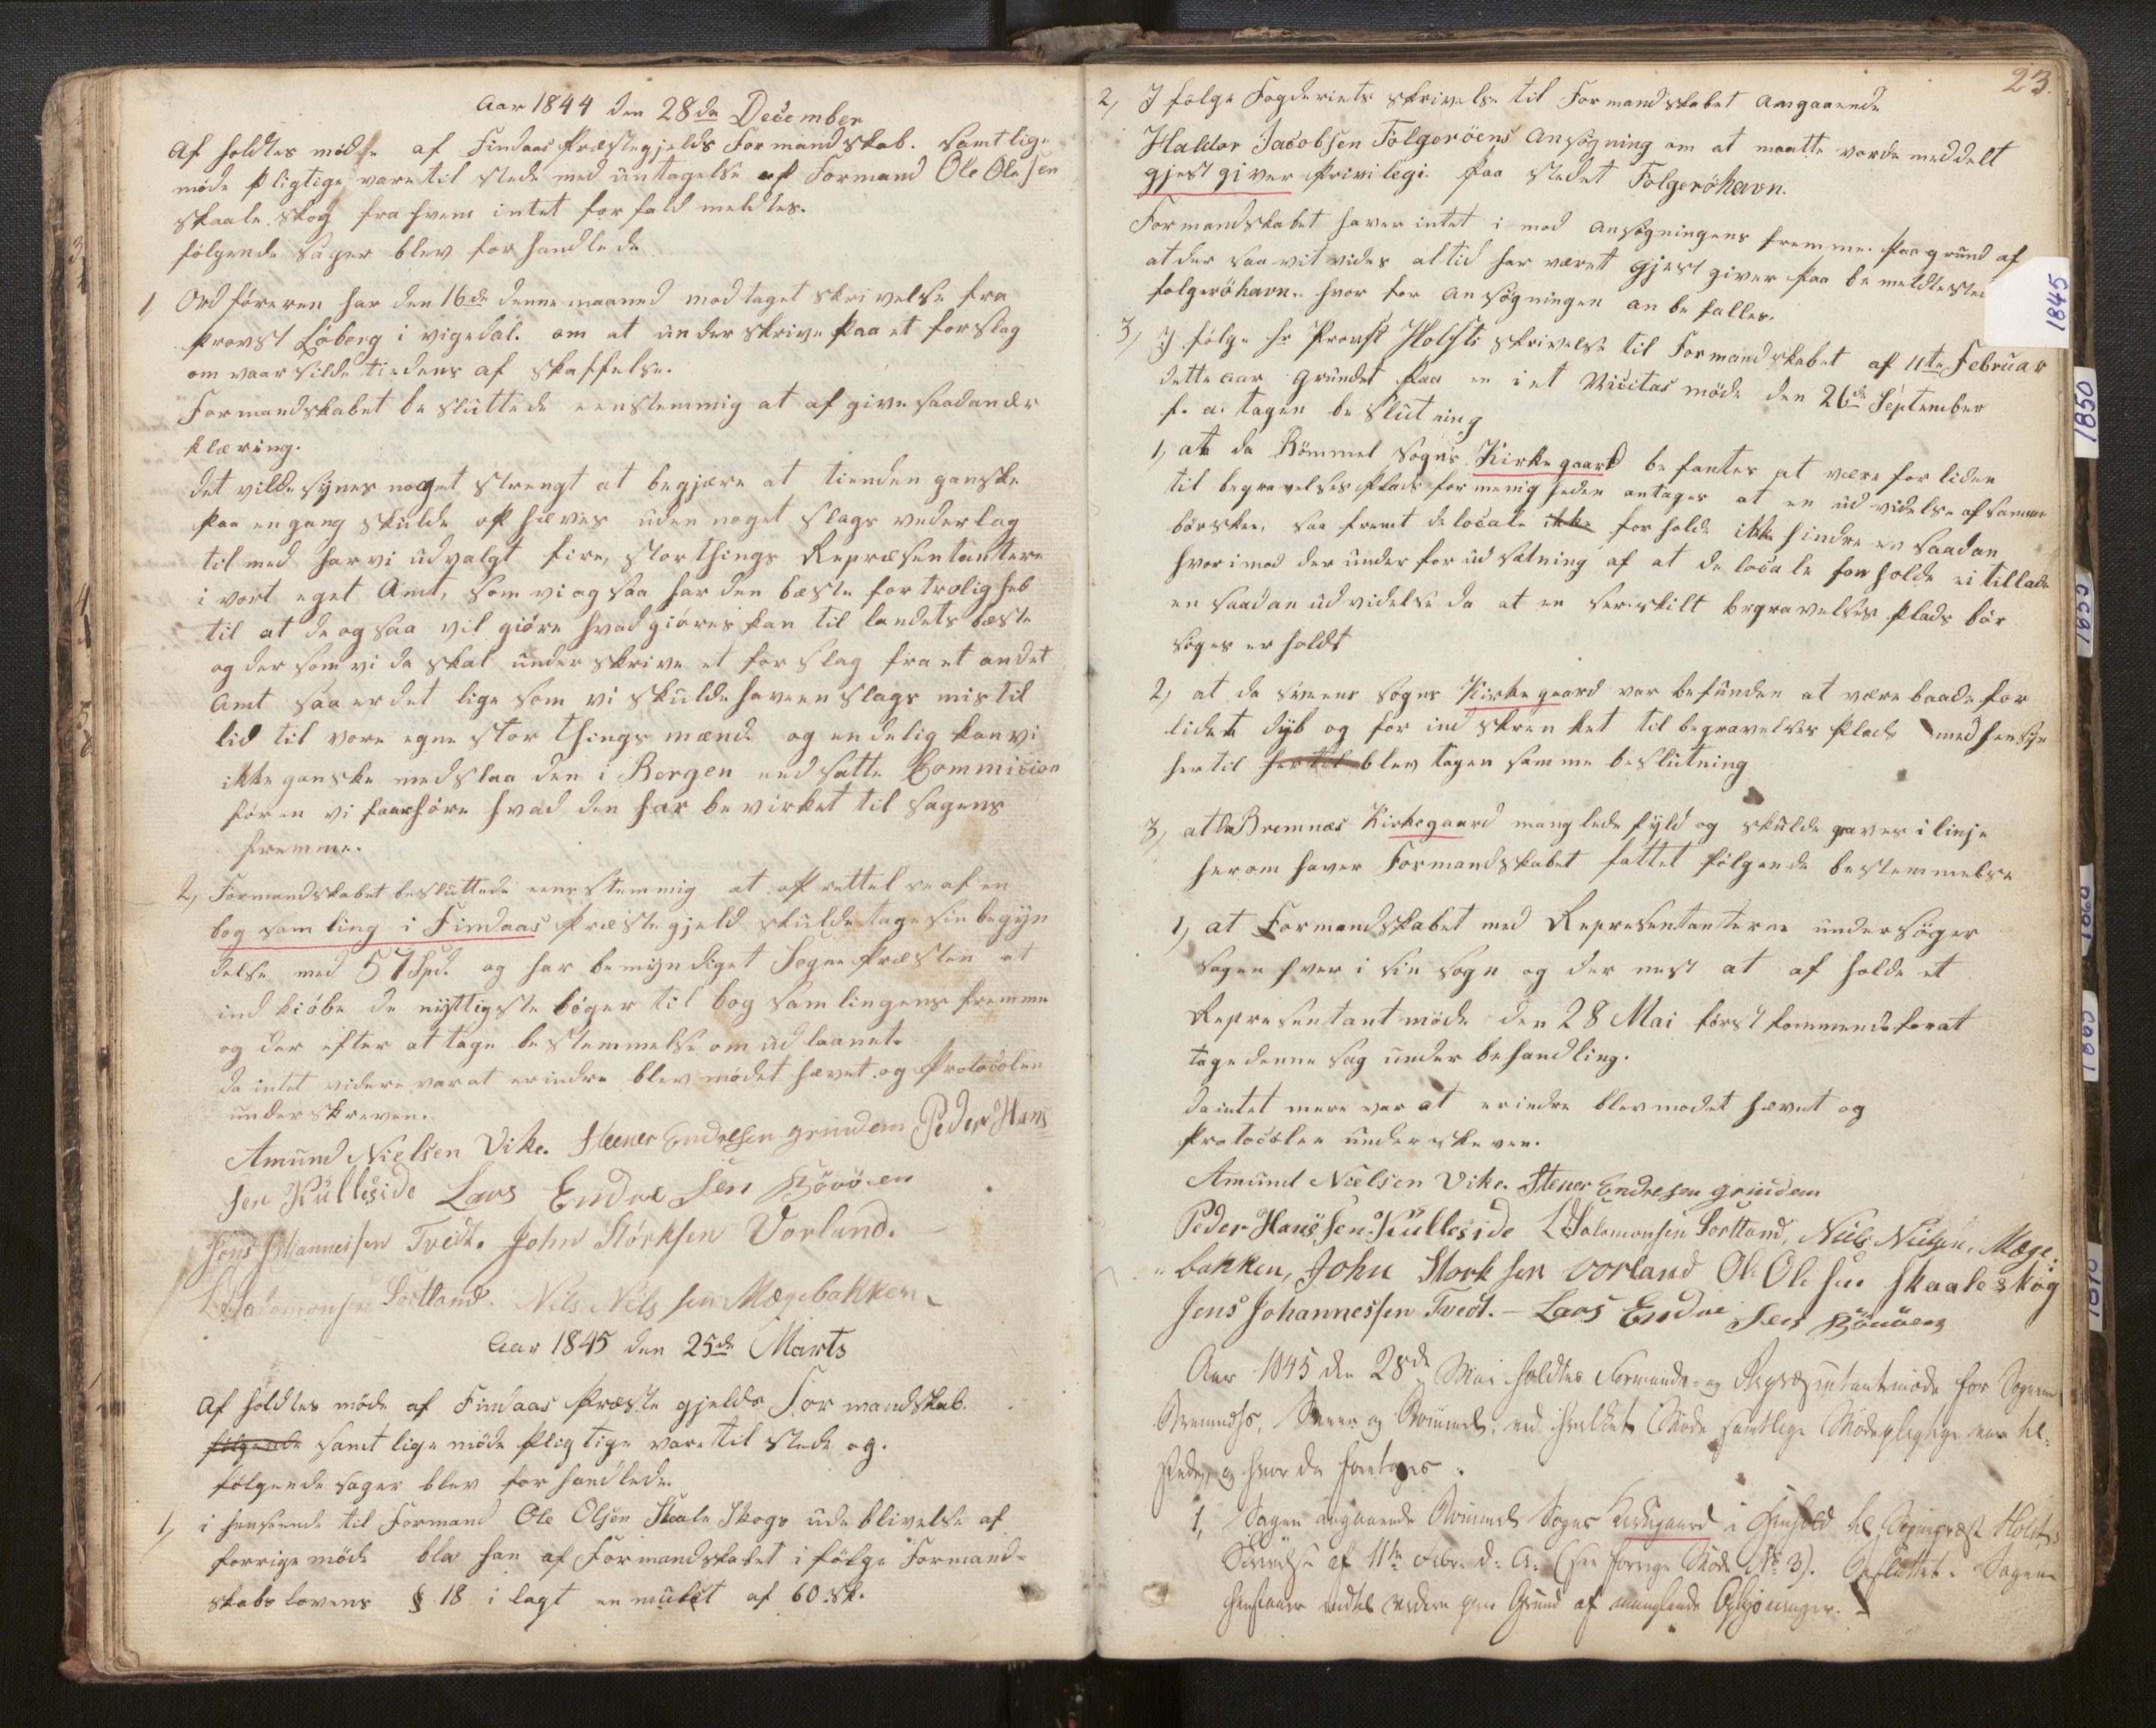 Aar 1844 den 28de December
Af holdtes møde af Findaas Præstegjelds Formandskab. Samtlige
møde pligtige vare til stede med untagelse af Formand Ole Olesen
Skaale skog fra hvem intet forfald meldtes.
følgende sager blev forhandlede
1 Ordføreren har den 16de denne maaned modtaget skrivelse fra
Provst Løberg i vigedal. om at underskrive paa et forslag
om vaarsilde tiedens af skaffelse.
Formandskabet besluttede eenstemmig at af give saadan ær
klæring.
det vilde synes noget strengt at begjære at tienden ganske
paa engang skulde ophæves uden noget slags vederlag
til med har vi udvalgt fire, storthings Repræsentantere
i vort eget Amt, som vi og saa har den bæste fortrolighed
til at de og saa vil giøre hvad giøres kan til landets bæste
og der som vi da skal under skrive et forslag fra et andet
Amt saa er det lige som vi skulde have en slags mis til
lid til vore egne stor things mænd og endelig kan vi
ikke ganske nedslaa den i Bergen ned satte Commicion
før en vi faar høre hvad den har be virket til sagens
fremme.
2, Formandskabet besluttede eenstemmig at op rettelse af en
bog samling i Findaas Præstegjeld skulde tage sin begyn
delse med 57 Spd. og har bemyndiget Sogne Præsten at
ind kiøbe de nyttigste bøger til bog samlingens fremme
og der efter at tage bestemmelse om ud laanet.
da intet videre var at erindre blev mødet hævet og Protocolen
under skreven.
Amund Nielsen Vike. Steener Endresen grindem Peder Hans
sen Külleside Lars Endre sen Høvöen
Jens Johannessen Tvedt. John Størksen Vorland.
L Salomonsen Sortland. Nils Nils sen Mægebakken
Aar 1845 den 25de Marts
Af holdtes møde af Findaas Præste gjelds Formandskab.
følgende samtlige møde pligtige vare til stede og.
følgende sager blev forhandlede.
1, i henseende til Formand Ole Olsen Skaale Skogs ude blivelse af
forrige møde blev han af Formandskabet i følge Formand-
skabs lovens § 18 i lagt en mulct af 60 sk.
23.
2, I følge Fogderiets skrivelse til Formandskabet angaaende
Haldor Jacobsen Folgerøens Ansøgning om at maatte vorde meddelt
gjest giver Privilegi paa stedet Folgerøhavn.
Formandskabet haver intet i mod ansøgningens fremme. paa grund af
at der saa vit vides altid har været gjest giver paa be meldte sted
folgerøhavn. hvor for ansøgningen an be falles.
1845
3, I følge Hr Provst Holsts skrivelse til Formandskabet af 11te Februar
dette aar grundet paa en i et Vicitas møde den 26de September
f. a. tagen be slutning
1, at da Bømmel Sogns Kirkegaard be fantes at være for liden
til begravelses plads for menigheden antages at en ud videlse af samme
bør skee, saa fremt de locale ikke for holde ikke hindre en saadan
hvorimod der under forud sætning af at de locale for holde ei tillade
en saadan udvidelse da at en serskilt begravelses plads bør
søges er holdt
2, at da sveens sogns Kirkegaard var befunden at være baade for
lidet dyb og for ind skrenket til begravelses plads med hensyn
hertil hertil blev tagen samme beslutning
3, at da Bremnæs Kirkegaard manglede fyld og skulde graves i linje
herom haver Formandskabet fattet følgende bestemmelse
1, at Formandskabet med Representanterne undersøger
sagen hver i sin sogn og der nest at af holde et
Representant møde den 28 Mai først kommende for at
tage denne sag under behandling.
da intet mere var at erindre blev mødet hævet og
Protocolen under skreven.
Amund Nielsen Vike. Stener Endresen grindem
Peder Hanssen Külleside L Salomonsen Sortland, Niels Nielsen, Mæge-
bakken, John Størksen Vorland Ole Olesen Skaaleskog
Jens Johannessen Tvedt. - Lars Endre sen Høvöen
Aar 1845 den 28de Mai holdtes Formands- og Repræsentantmøde for Sognene
Bremnæs, Sveen og Bømmel, ved hvilket Møde samtlige Mødepligtige vare til-
stede, og hvor da foretoges.
1, Sagen angaaende Bømmels Sogns Kirkegaard i Henhold til Sognepræst Holsts
Skrivelse af 11te Febr. d. A. (see forrige Møde No 3). Besluttet. Sagen
henstaaer indtil videre paa Grund af manglende Oplysninger.
1850
1855
1860
1865
1870